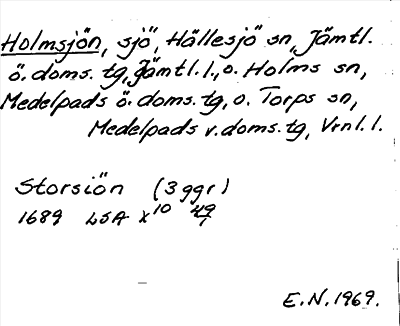 Holmsjön, sjö, Hällesjö sn, Jämtl.
ö. doms. tg, Jämtl. l., o. Holms sn,
Medelpads ö. doms. tg, o. Torps sn,
Medelpads v. doms. tg, Vrnl. l.
Storsiön (3 ggr)
1689 LSA X¹⁰ 49/1
E.N. 1969.